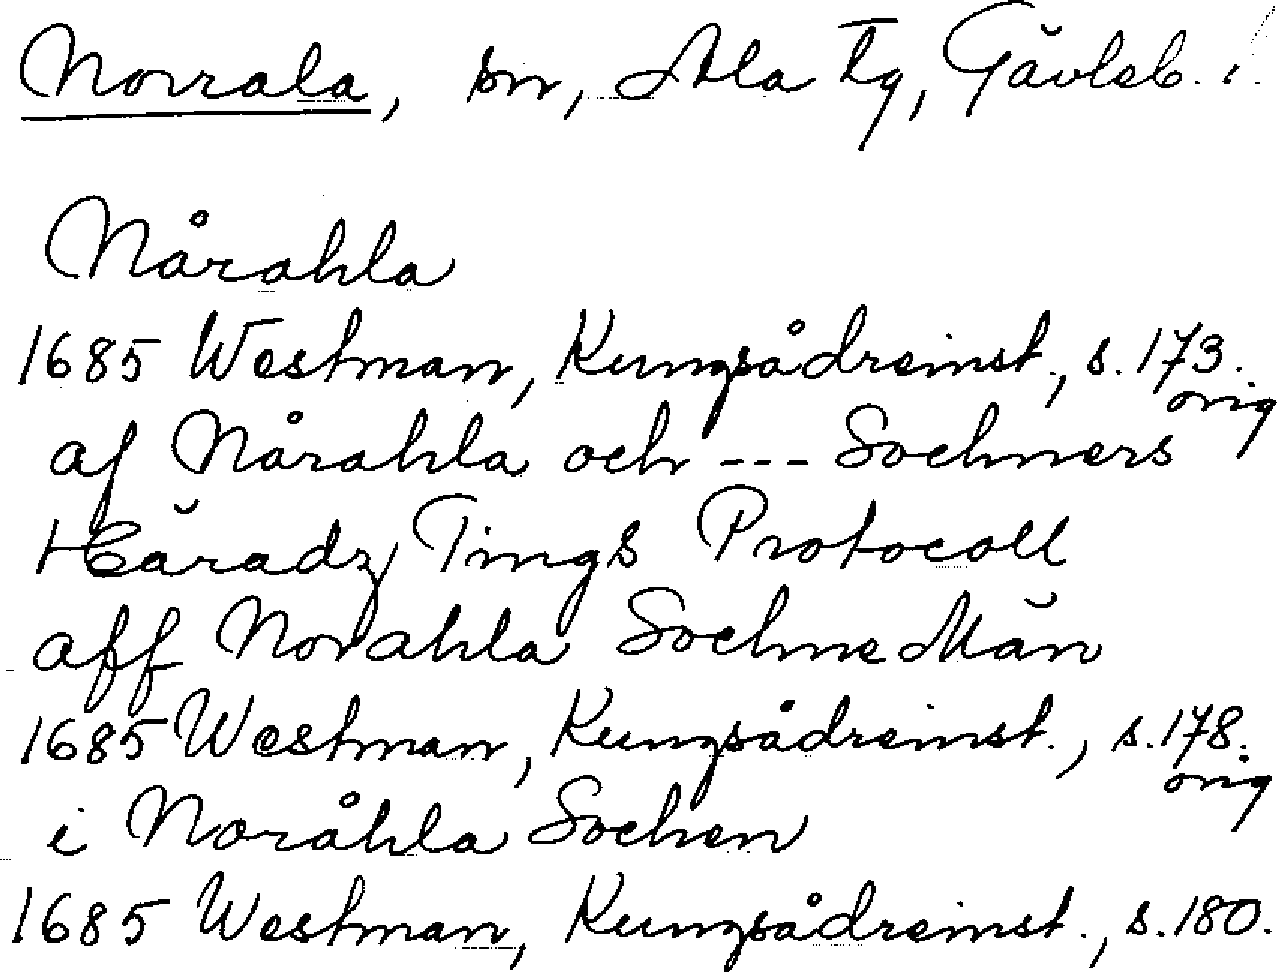 Norrala, sn, Ala tg, Gävleb. l.
Nårahla
1685 Westman, Kungsådreinst., s. 173.
orig
af Nårahla och --- Sochners
Häradz Tings Protocoll
aff Norahla SochneMän
1685 Westman, Kungsådreinst., s. 178.
orig
i Noråhla Sochen
1685 Westman, Kungsådreinst., s. 180.